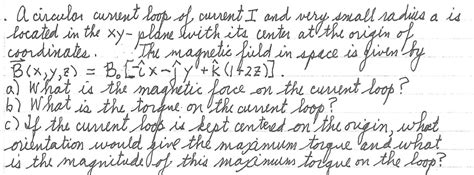 . A circular current loop of current I and very small radius a is
located in the xy-plane with its center at the origin of
coordinates. The magnetic field in space is given by
B⃗(x,y,z) = B₀[-î x - ĵ y + k̂(1+2z)].
a) What is the magnetic force on the current loop?
b) What is the torque on the current loop?
c) If the current loop is kept centered on the origin, what
orientation would give the maximum torque and what
is the magnitude of this maximum torque on the loop?